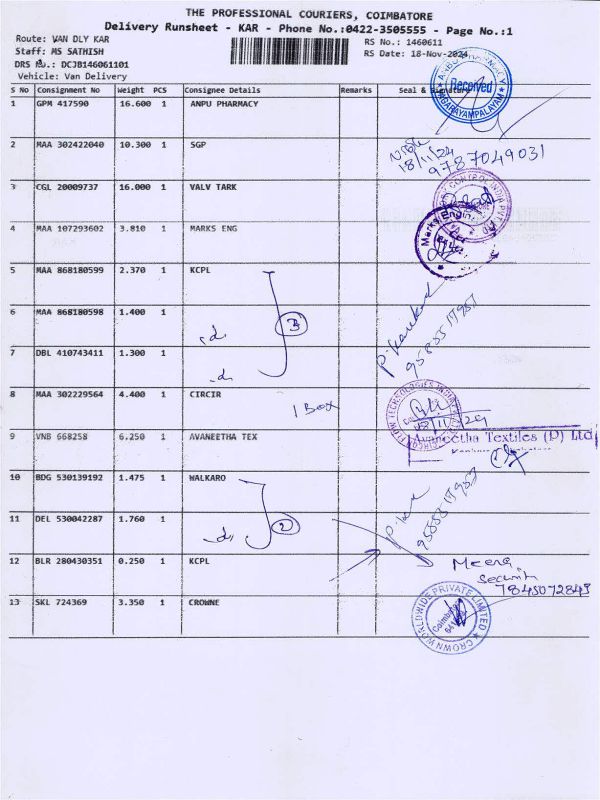 THE PROFESSIONAL COURIERS, COIMBATORE
Delivery Runsheet - KAR - Phone No.:0422-3505555 - Page No.:1
Route: VAN DLY KAR
RS No.: 1460611
Staff: MS SATHISH
RS Date: 18-Nov-2024
DRS No.: DCJB146061101
Vehicle: Van Delivery
Received
S No Consignment No Weight PCS Consignee Details Remarks Seal & Signature
1 GPM 417590 16.600 1 ANPU PHARMACY
18/11/24
9787049031
2 MAA 302422040 10.300 1 SGP
3 CGL 20009737 16.000 1 VALV TARK
4 MAA 107293602 3.810 1 MARKS ENG
5 MAA 868180599 2.370 1 KCPL
6 MAA 868180598 1.400 1
3
7 DBL 410743411 1.300 1
8 MAA 302229564 4.400 1 CIRCIR
1 Box
9 VNB 668258 6.250 1 AVANEETHA TEX
Avaneetha Textiles (P) Ltd
10 BDG 530139192 1.475 1 WALKARO
11 DEL 530042287 1.760 1
2
12 BLR 280430351 0.250 1 KCPL
Meena
Security
7845072843
13 SKL 724369 3.350 1 CROWNE
CROWN WORLDWIDE PRIVATE LIMITED
Coimbatore